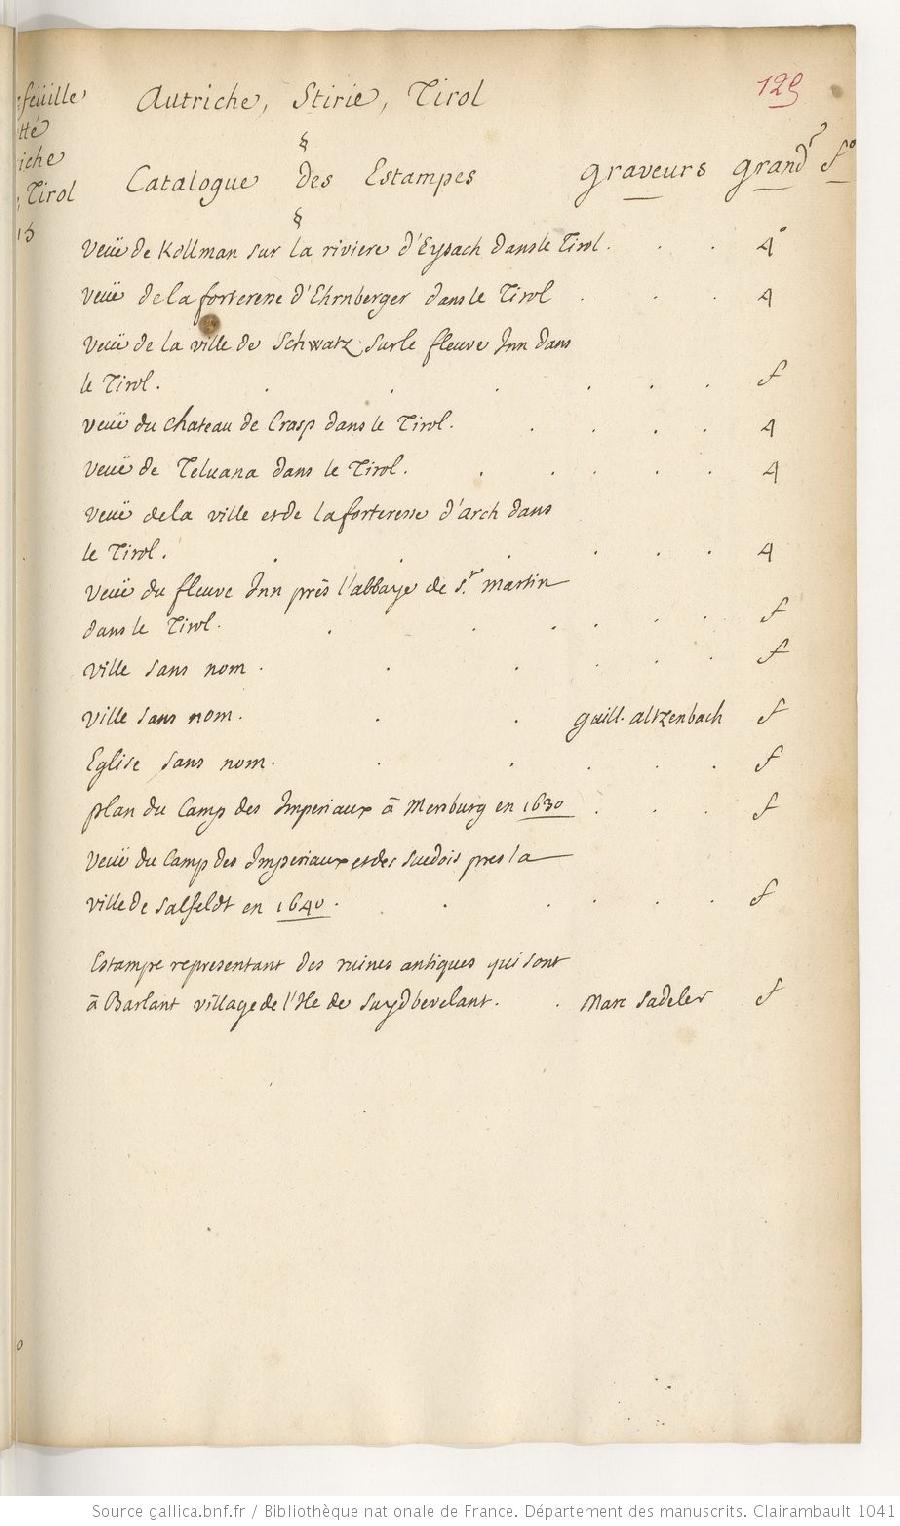 Autriche, Stirie, Tirol
129
§
Catalogue des Estampes graveurs grandr fo
§
Veüe de Kollman sur la riviere d'Eysach dans le Tirol. 4°
Veüe de la forterene d'Ehrnberger dans le Tirol 4
Veüe de la ville de Schwatz sur le fleuve Inn dans
le Tirol. f
Veüe du chateau de Crasp dans le Tirol. 4
Veüe de Teluana dans le Tirol. 4
Veüe de la ville et de la forteresse d'arch dans
le Tirol. 4
Veüe du fleuve Inn près l'abbaye de St. martin
dans le Tirol. f
Ville sans nom. f
Ville sans nom. guill. altzenbach f
Eglise sans nom. f
plan du Camp des Imperiaux à Mersburg en 1630 f
Veüe du Camp des Imperiaux et des Suedois pres la
ville de Salfeldt en 1640. f
Estampe representant des ruines antiques qui sont
à Barlant village de l'Ile de Suydbevelant. Marc Sadeler f
feüille
tté
iche
, Tirol
Source gallica.bnf.fr / Bibliothèque nationale de France. Département des manuscrits. Clairambault 1041